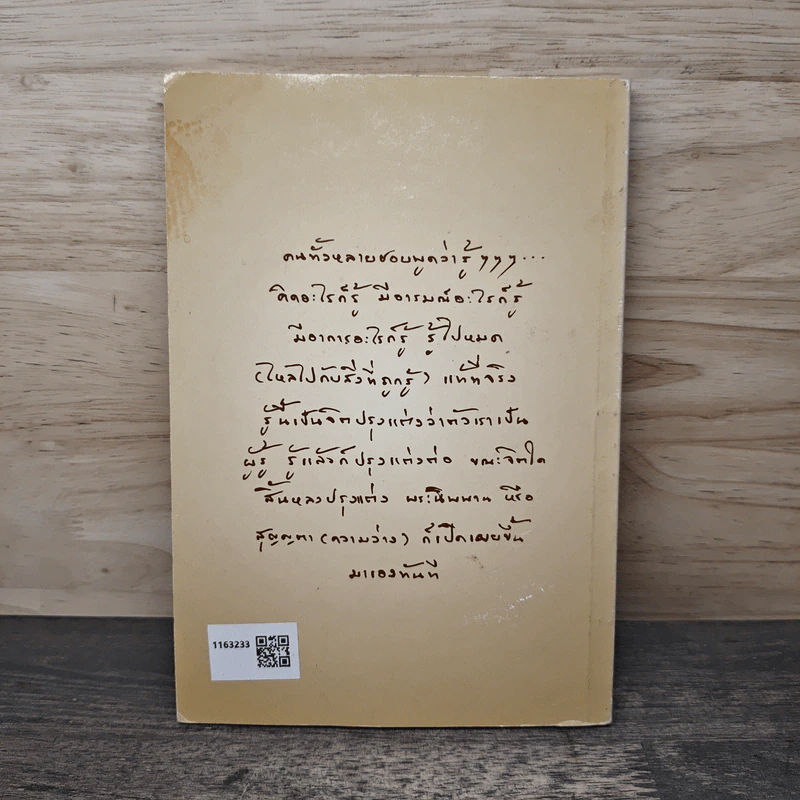 คนทั้งหลายชอบพูดว่ารู้ ๆๆๆ...
คิดอะไรก็รู้ มีอารมณ์อะไรก็รู้
มีอาการอะไรก็รู้ รู้ไปหมด
(ไหลไปกับสิ่งที่ถูกรู้) แท้ที่จริง
รู้นี้เป็นจิตปรุงแต่งว่าตัวเราเป็น
ผู้รู้ รู้แล้วก็ปรุงแต่งต่อ ขณะจิตใด
สิ้นหลงปรุงแต่ง พระนิพพาน หรือ
สุญญตา (ความว่าง) ก็เปิดเผยขึ้น
มาเองทันที
1163233